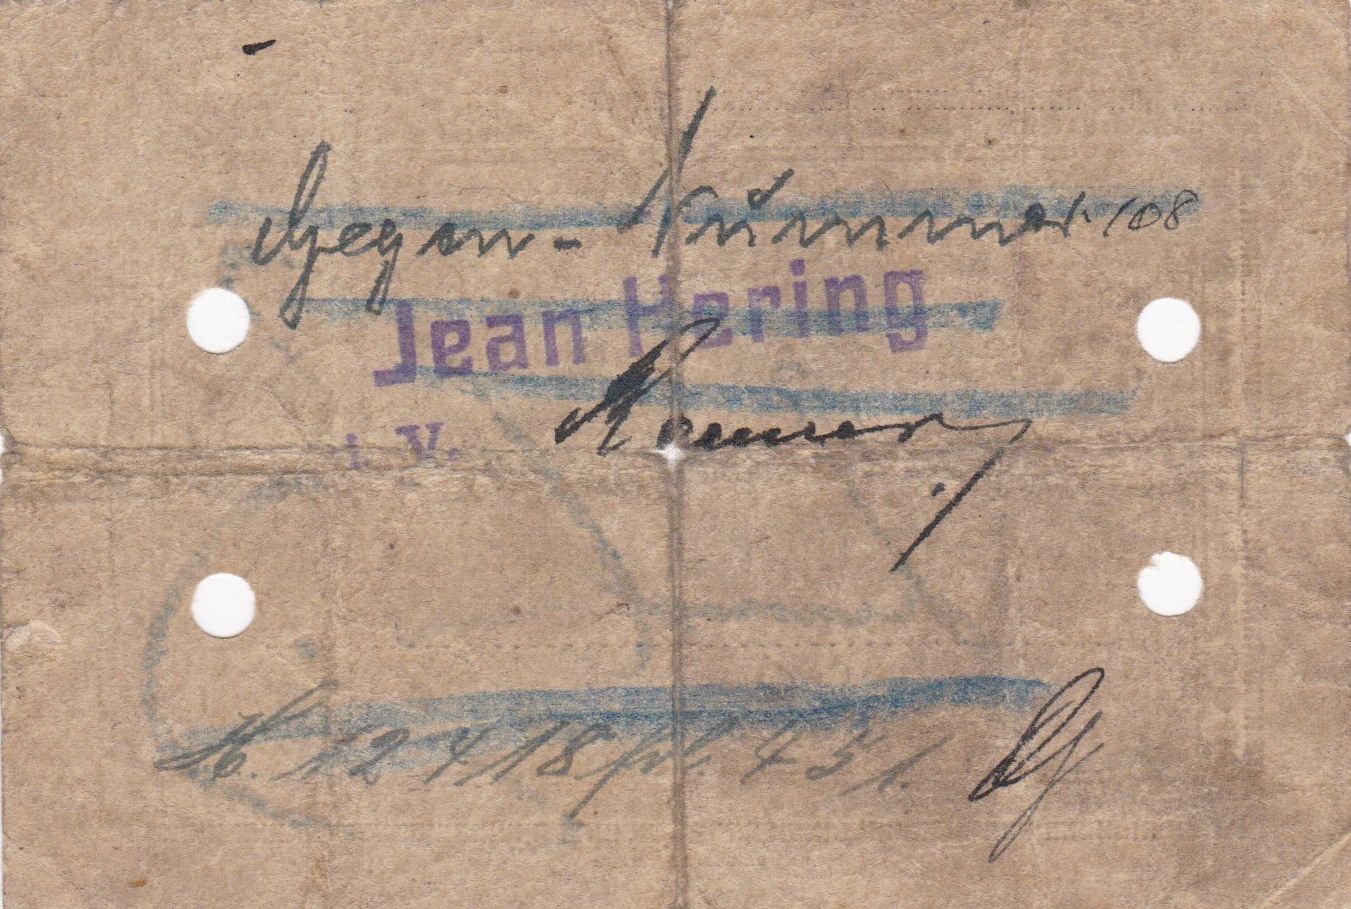 Gegen-Nummer 108
Jean Hering
i. V.
12418 fol. 431.